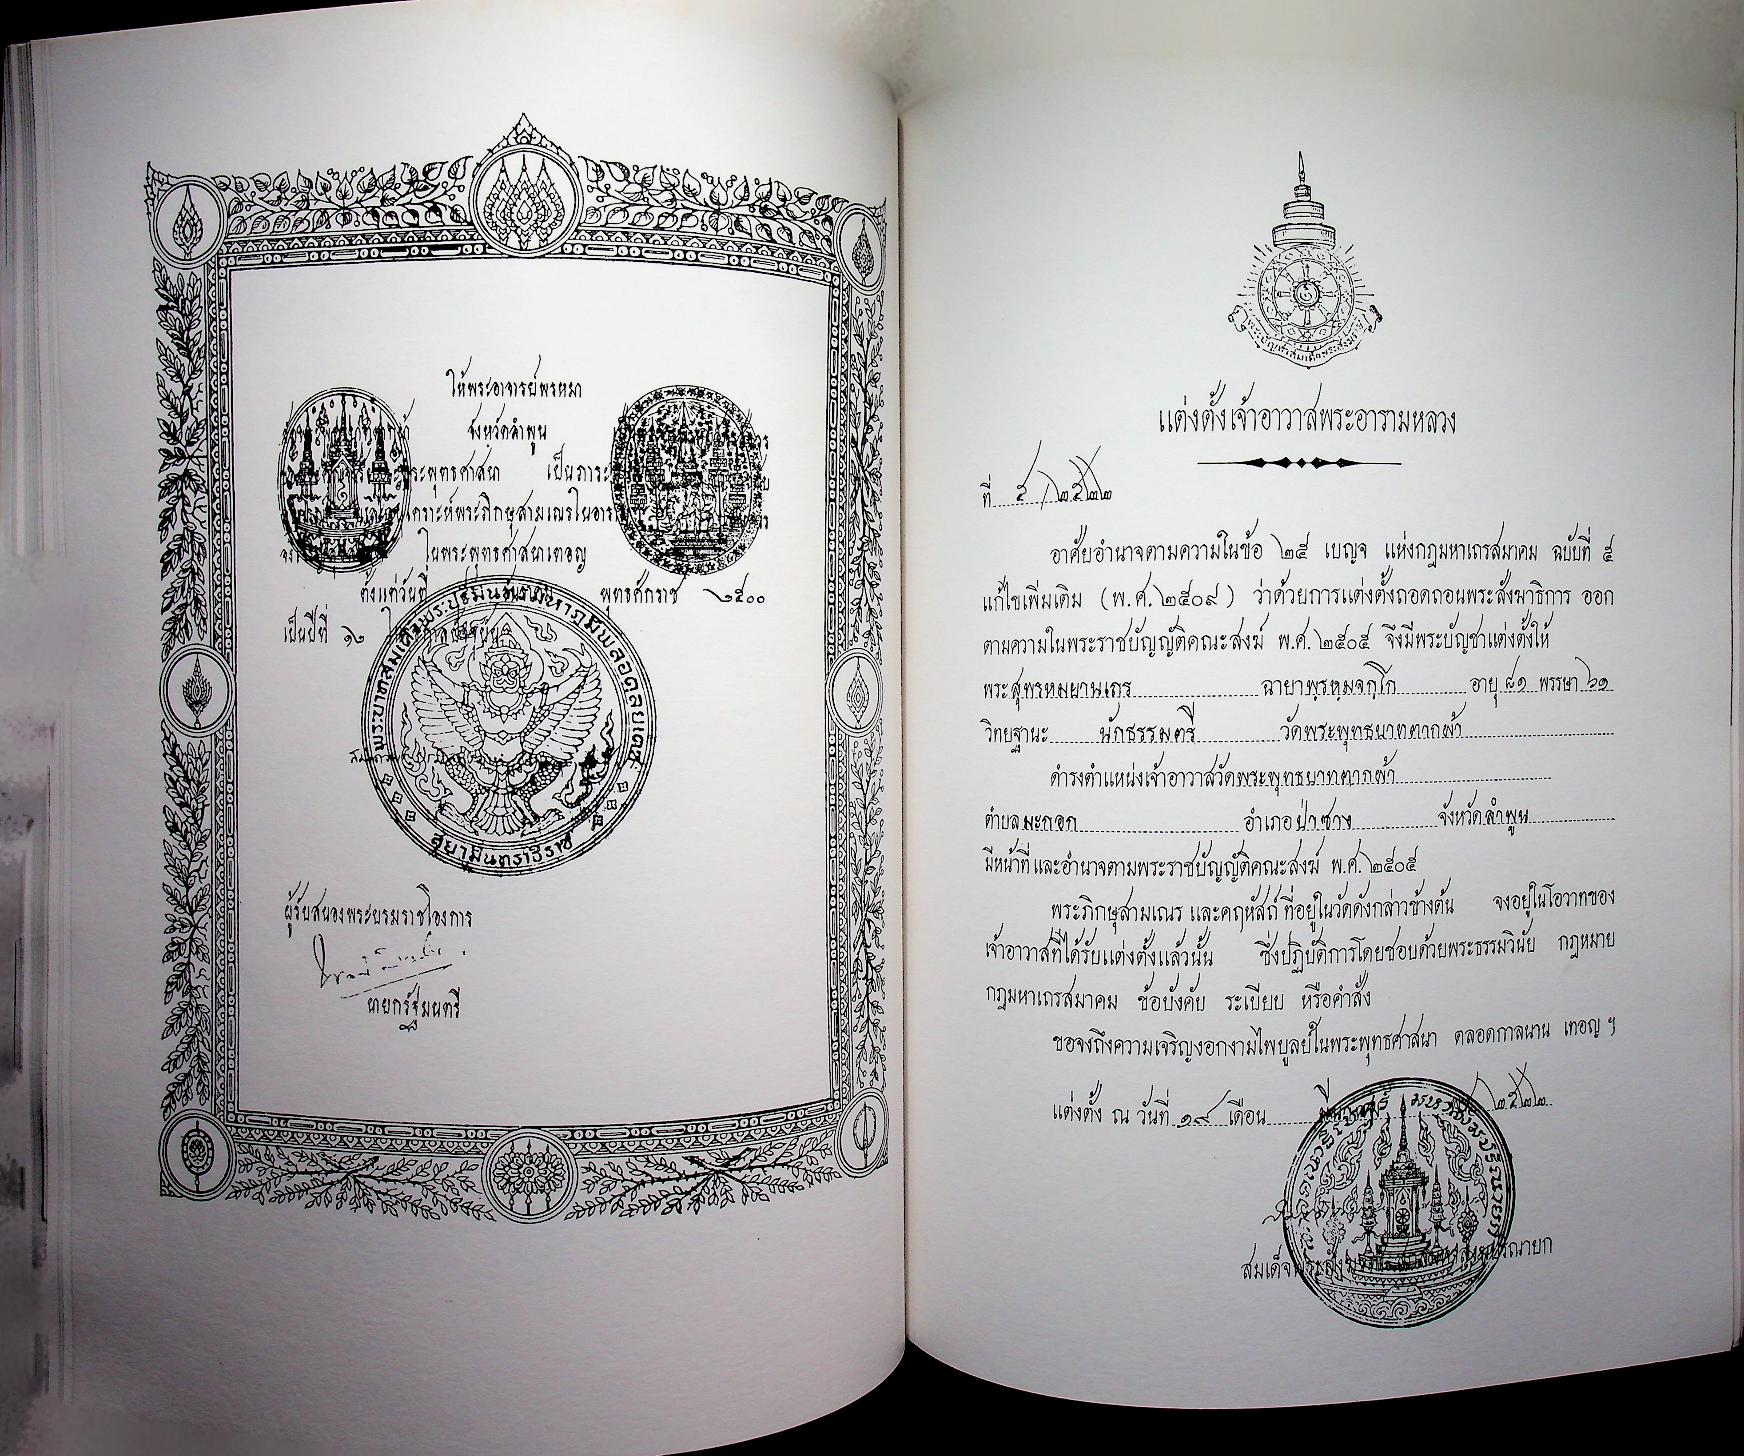 ให้พระอาจารย์พรหมา
จังหวัดลำพูน
พระพุทธศาสนา เป็นภาระ
เคราะห์พระภิกษุสามเณรในอาร
ในพระพุทธศาสนาเทอญ
ตั้งแต่วันที่ พุทธศักราช ๒๕๐๐
เป็นปีที่ ๑๒
สมเด็จพระปรมินทรมหาภูมิพลอดุลยเดช
สยามินทราธิราช
ผู้รับสนองพระบรมราชโองการ
นายกรัฐมนตรี
พระบัญชาสมเด็จพระสังฆราช
แต่งตั้งเจ้าอาวาสพระอารามหลวง
ที่ ๕/๒๕๒๒
อาศัยอำนาจตามความในข้อ ๒๕ เบญจ แห่งกฎมหาเถรสมาคม ฉบับที่ ๕
แก้ไขเพิ่มเติม (พ.ศ.๒๕๐๙) ว่าด้วยการแต่งตั้งถอดถอนพระสังฆาธิการ ออก
ตามความในพระราชบัญญัติคณะสงฆ์ พ.ศ.๒๕๐๕ จึงมีพระบัญชาแต่งตั้งให้
พระสุพรหมยานเถร ฉายาพฺรหฺมจกฺโก อายุ ๘๑ พรรษา ๖๑
วิทยฐานะ นักธรรมตรี วัดพระพุทธบาทตากผ้า
ดำรงตำแหน่งเจ้าอาวาสวัดพระพุทธบาทตากผ้า
ตำบลมะกอก อำเภอป่าซาง จังหวัดลำพูน
มีหน้าที่และอำนาจตามพระราชบัญญัติคณะสงฆ์ พ.ศ.๒๕๐๕
พระภิกษุสามเณร และคฤหัสถ์ ที่อยู่ในวัดดังกล่าวข้างต้น จงอยู่ในโอวาทของ
เจ้าอาวาสที่ได้รับแต่งตั้งแล้วนั้น ซึ่งปฏิบัติการโดยชอบด้วยพระธรรมวินัย กฎหมาย
กฎมหาเถรสมาคม ข้อบังคับ ระเบียบ หรือคำสั่ง
ขอจงถึงความเจริญงอกงามไพบูลย์ในพระพุทธศาสนา ตลอดกาลนาน เทอญ ฯ
แต่งตั้ง ณ วันที่ ๑๙ เดือน ๒๕๒๒
สมเด็จพระสังฆราช สกลมหาสังฆปริณายก